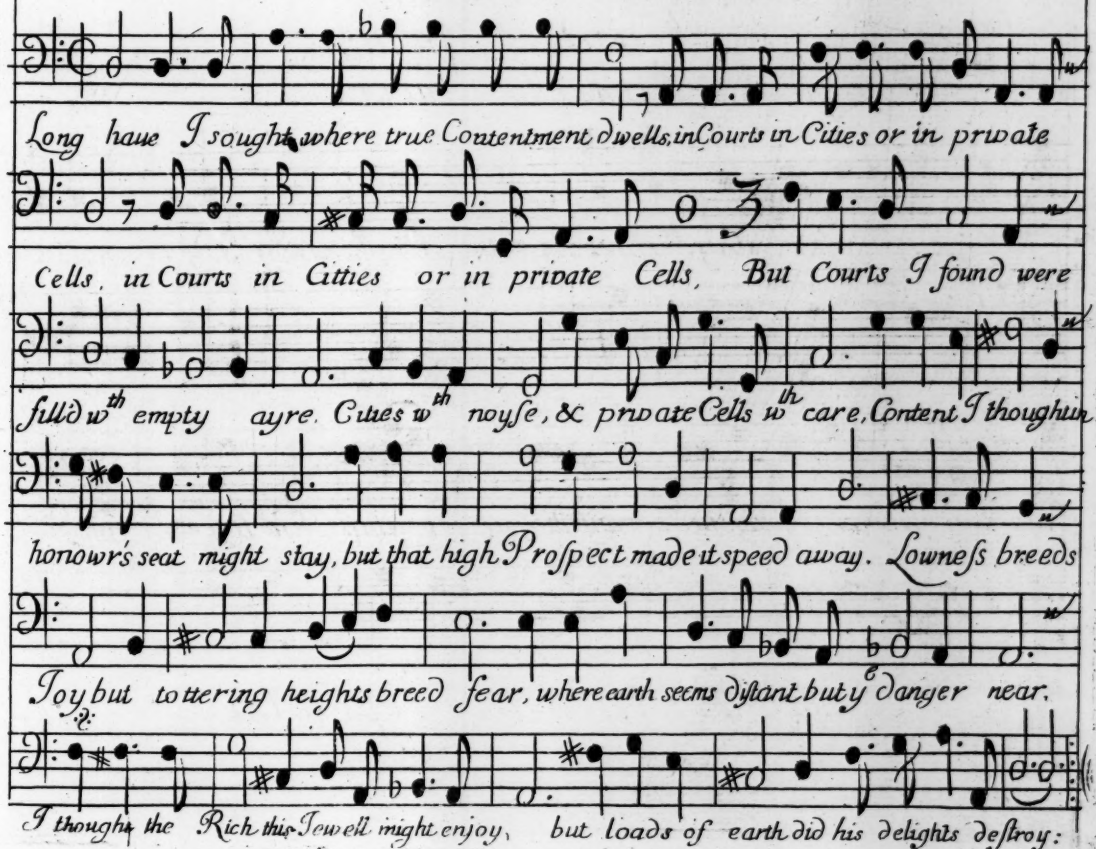 Long haue I sought, where true Contentment dwells, in Courts in Cities or in private
Cells, in Courts in Citties or in private Cells, But Courts I found were
filld wth empty ayre. Cities wth noyſe, & private Cells wth care, Content I thought in
honowr's seat might stay, but that high Proſpect made it speed away. Lowneſs breeds
Joy but tottering heights breed fear, where earth seems diſtant but ye danger near,
I thought the Rich this Jewell might enjoy, but loads of earth did his delights deſtroy: